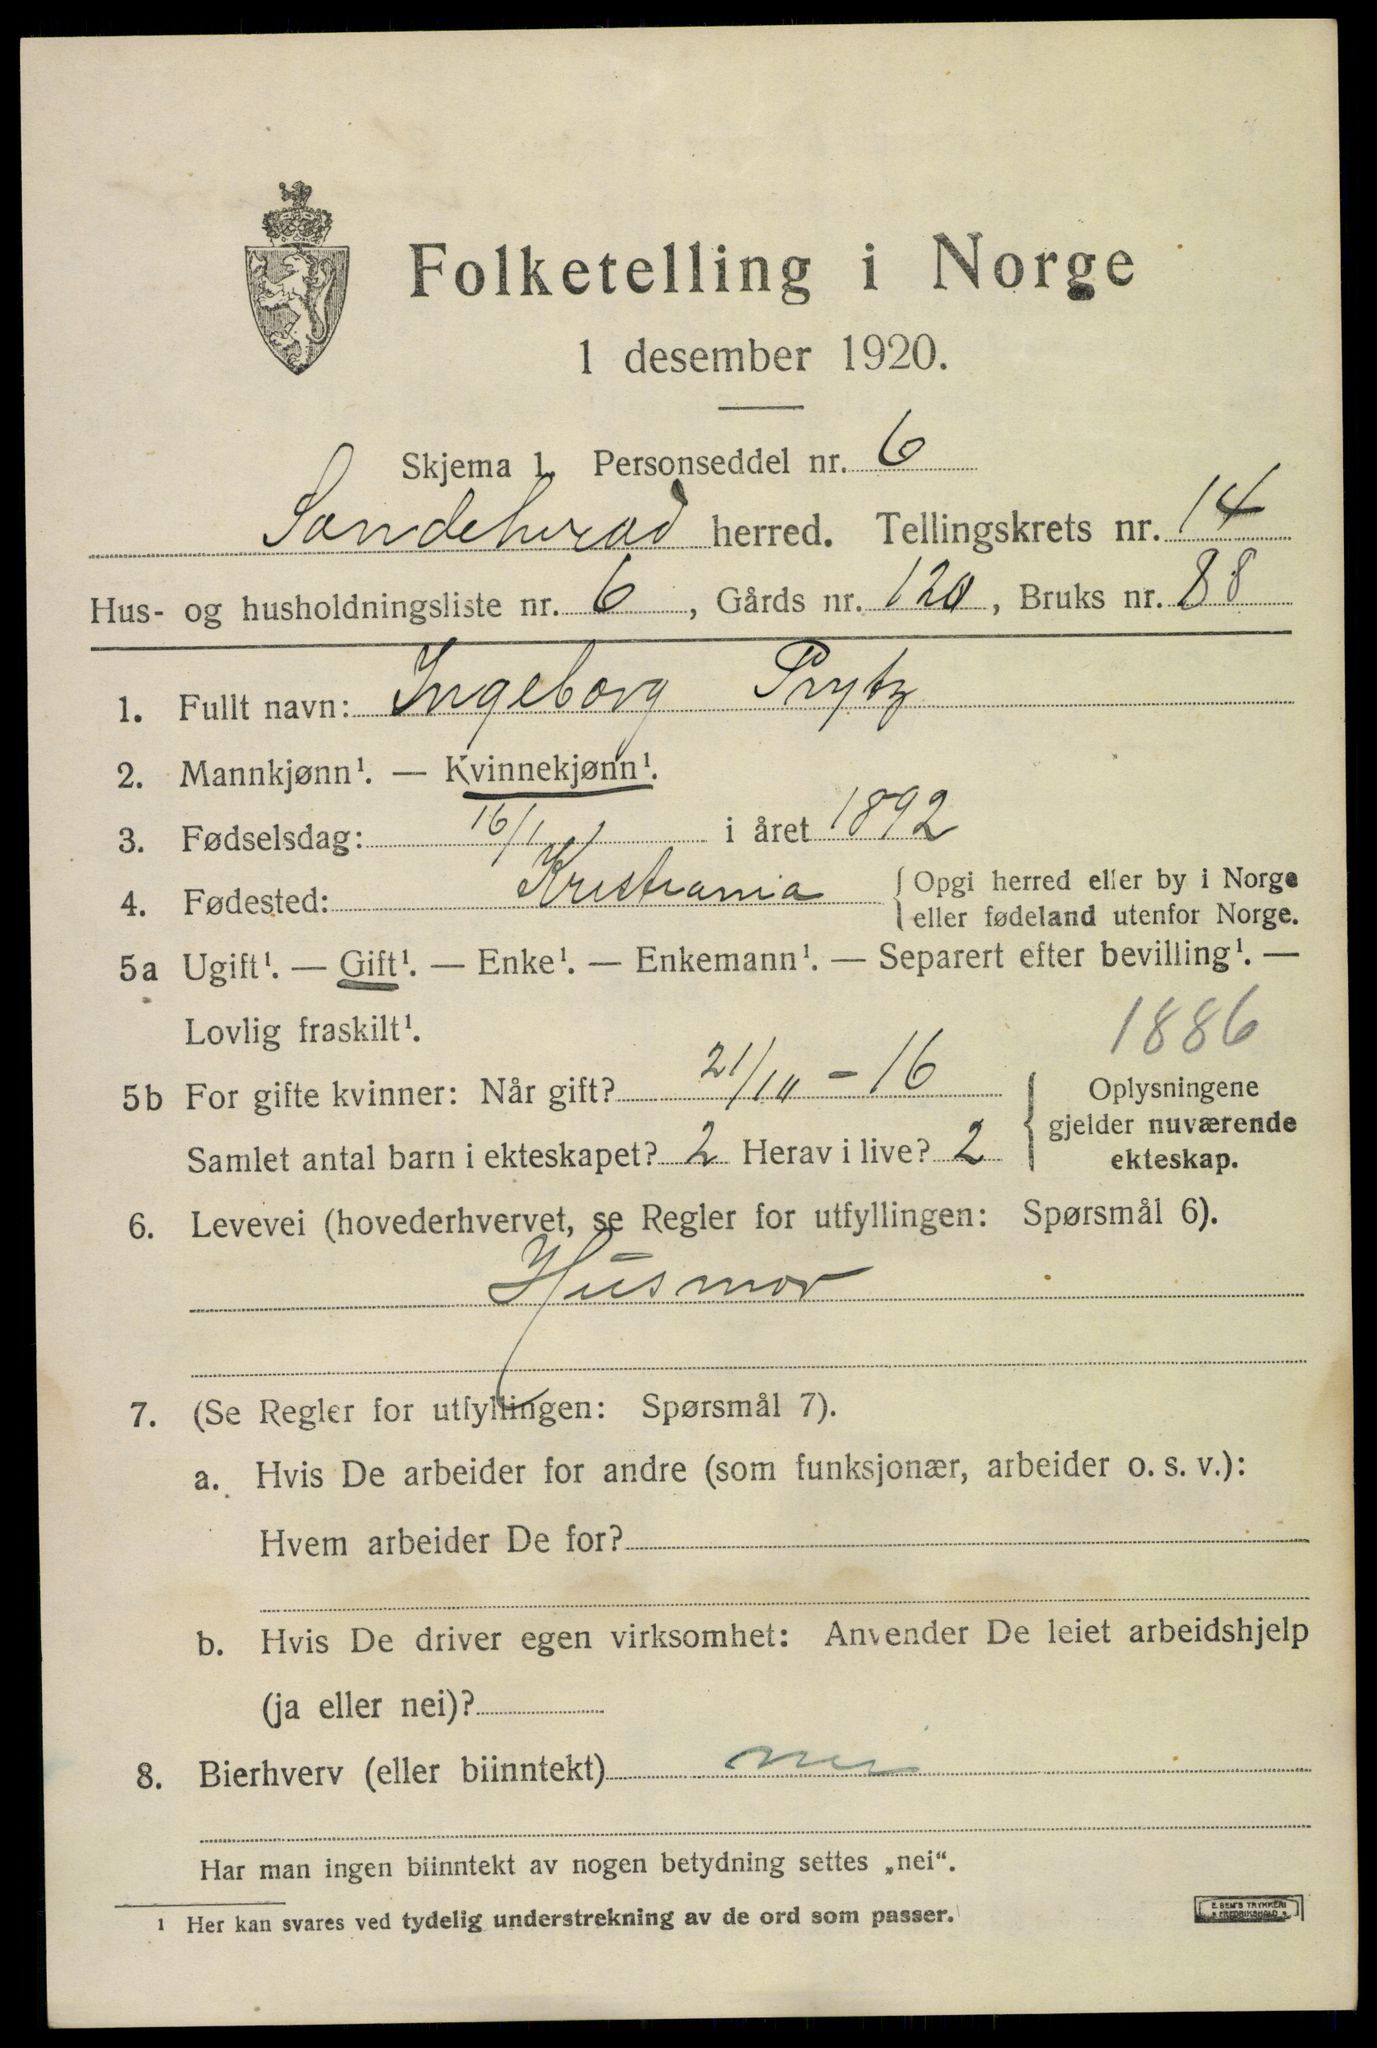 Folketelling i Norge
1 desember 1920.
Skjema 1. Personseddel nr. 6
Sandeherad herred. Tellingskrets nr. 14
Hus- og husholdningsliste nr. 6, Gårds nr. 120, Bruks nr. 88
1. Fullt navn: Ingeborg Prytz
2. Mannkjønn¹. — Kvinnekjønn¹.
3. Fødselsdag: 16/1 i året 1892
4. Fødested: Kristiania { Opgi herred eller by i Norge
eller fødeland utenfor Norge.
5a Ugift¹. — Gift¹. — Enke¹. — Enkemann¹. — Separert efter bevilling¹. —
Lovlig fraskilt¹.
1886
5b For gifte kvinner: Når gift? 21/10 - 16
Samlet antal barn i ekteskapet? 2 Herav i live? 2
Oplysningene
gjelder nuværende
ekteskap.
6. Levevei (hovederhvervet, se Regler for utfyllingen: Spørsmål 6).
Husmor
7. (Se Regler for utfyllingen: Spørsmål 7).
a. Hvis De arbeider for andre (som funksjonær, arbeider o. s. v.):
Hvem arbeider De for?
b. Hvis De driver egen virksomhet: Anvender De leiet arbeidshjelp
(ja eller nei)?
8. Bierhverv (eller biinntekt) nei
Har man ingen biinntekt av nogen betydning settes „nei“.
¹ Her kan svares ved tydelig understrekning av de ord som passer.
E. SEM'S TRYKKERI
FREDRIKSHALD